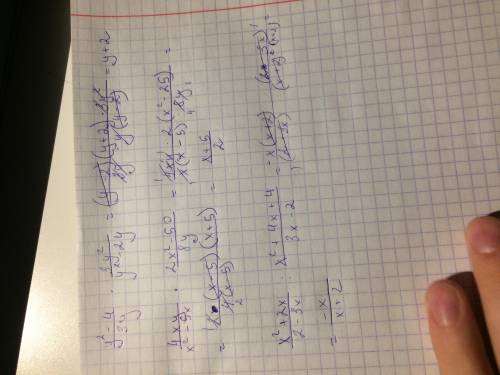 (y²-4)/(3y) · (3y²)/(y²-2y) = ((y-2)(y+2)·3y²)/(3y·y(y-2)) = y+2
(4xy)/(x²-5x) · (2x²-50)/(8y) = (4xy·2(x²-25))/(x(x-5)·8y) =
= (2·(x-5)(x+5))/(2(x-5)) = (x+5)/2
(x²+2x)/(2-3x) : (x²+4x+4)/(3x-2) = -(x(x+2))/(2-3x) · (2-3x)/((x+2)·(x+2)) =
= (-x)/(x+2)